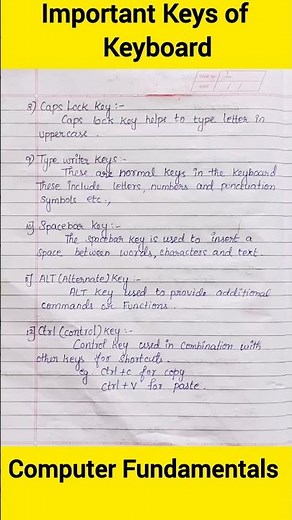 Important Keys of
Keyboard
8) Caps Lock Key :-
Caps lock key helps to type letter in
uppercase
9) Type writer keys :-
These are normal keys in the keyboard
These include letters, numbers and punctuation
symbols etc.,
10) Spacebar key :-
The spacebar key is used to insert a
space between words, characters and text.
11) ALT (Alternate) Key :-
ALT key used to provide additional
commands or Functions.
12) Ctrl (control) key :-
Control key used in combination with
other keys for shortcuts.
eg Ctrl+c for copy
Ctrl+V for paste.
Computer Fundamentals